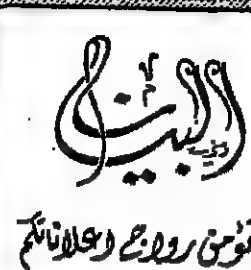 البيان
تؤمن رواج اعلاناتكم